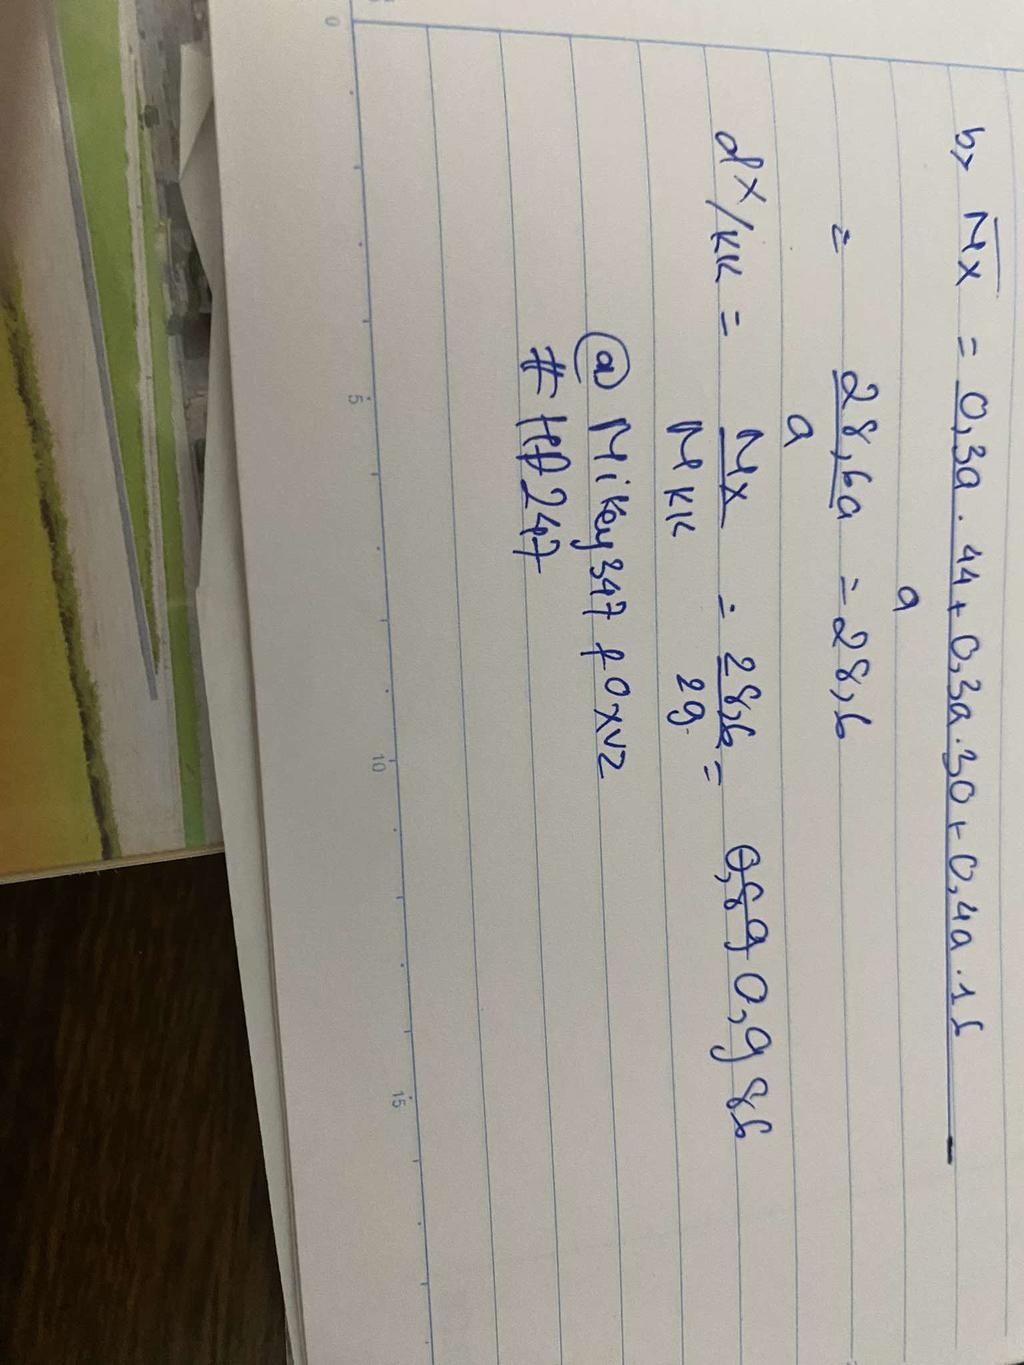 b, M̅X̅ = 0,3a.44+0,3a.30+0,4a.16
a
= 28,6a = 28,6
a
dX/KK = MX = 28,6 = 0,89 0,986
MKK 29
@Mikey347 foxvz
#HD247
0 5 10 15